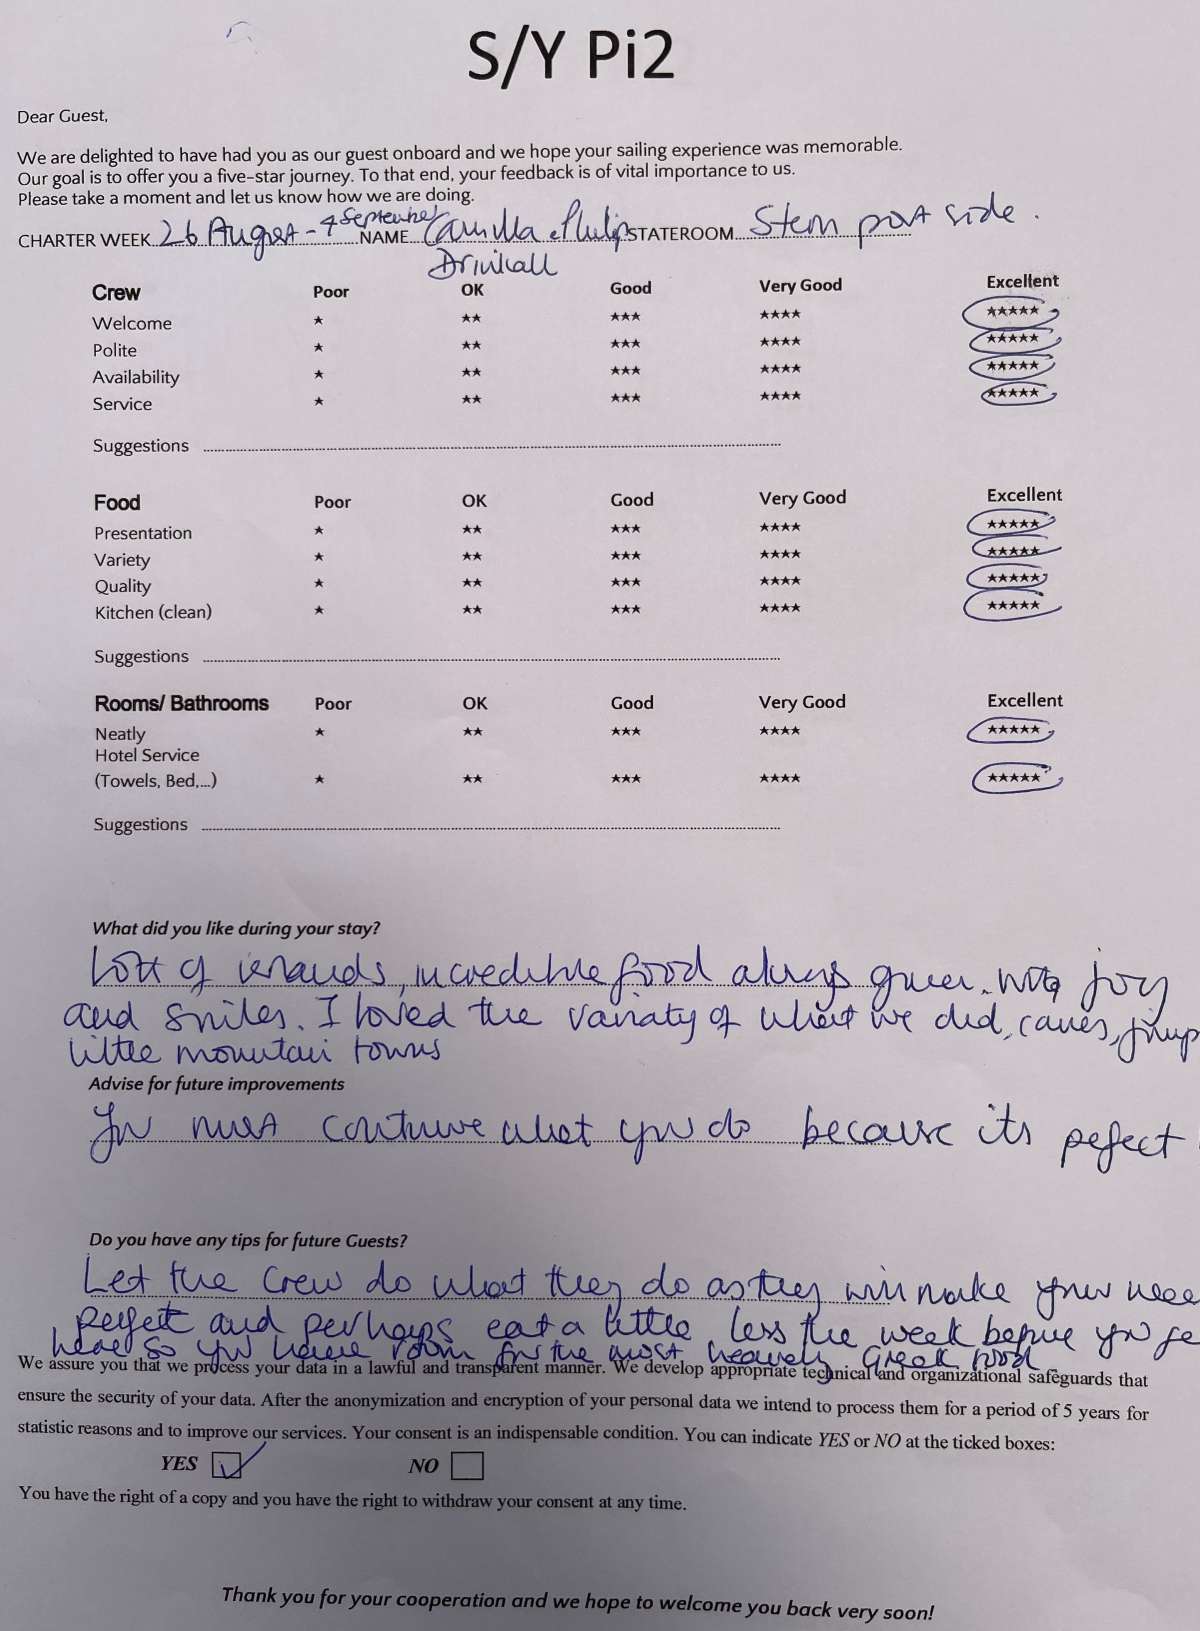 S/Y Pi2
Dear Guest,
We are delighted to have had you as our guest onboard and we hope your sailing experience was memorable.
Our goal is to offer you a five-star journey. To that end, your feedback is of vital importance to us.
Please take a moment and let us know how we are doing.
CHARTER WEEK 26 August - 4 September NAME Camilla & Philip STATEROOM Stern port side.
Drinkall
Crew Poor OK Good Very Good Excellent
Welcome ★ ★★ ★★★ ★★★★ ★★★★★
Polite ★ ★★ ★★★ ★★★★ ★★★★★
Availability ★ ★★ ★★★ ★★★★ ★★★★★
Service ★ ★★ ★★★ ★★★★ ★★★★★
Suggestions
Food Poor OK Good Very Good Excellent
Presentation ★ ★★ ★★★ ★★★★ ★★★★★
Variety ★ ★★ ★★★ ★★★★ ★★★★★
Quality ★ ★★ ★★★ ★★★★ ★★★★★
Kitchen (clean) ★ ★★ ★★★ ★★★★ ★★★★★
Suggestions
Rooms/ Bathrooms Poor OK Good Very Good Excellent
Neatly ★ ★★ ★★★ ★★★★ ★★★★★
Hotel Service
(Towels, Bed,...) ★ ★★ ★★★ ★★★★ ★★★★★
Suggestions
What did you like during your stay?
Lots of islands, incredible food always given with joy
and smiles. I loved the variaty of what we did, caves,
little mountain towns
Advise for future improvements
You must continue what you do because its pefect
Do you have any tips for future Guests?
Let the crew do what they do as they will make your
perfect and perhaps eat a little less the week before you
here so you have room for the most heavenly Greek food
We assure you that we process your data in a lawful and transparent manner. We develop appropriate technical and organizational safeguards that
ensure the security of your data. After the anonymization and encryption of your personal data we intend to process them for a period of 5 years for
statistic reasons and to improve our services. Your consent is an indispensable condition. You can indicate YES or NO at the ticked boxes:
YES ✓ NO
You have the right of a copy and you have the right to withdraw your consent at any time.
Thank you for your cooperation and we hope to welcome you back very soon!